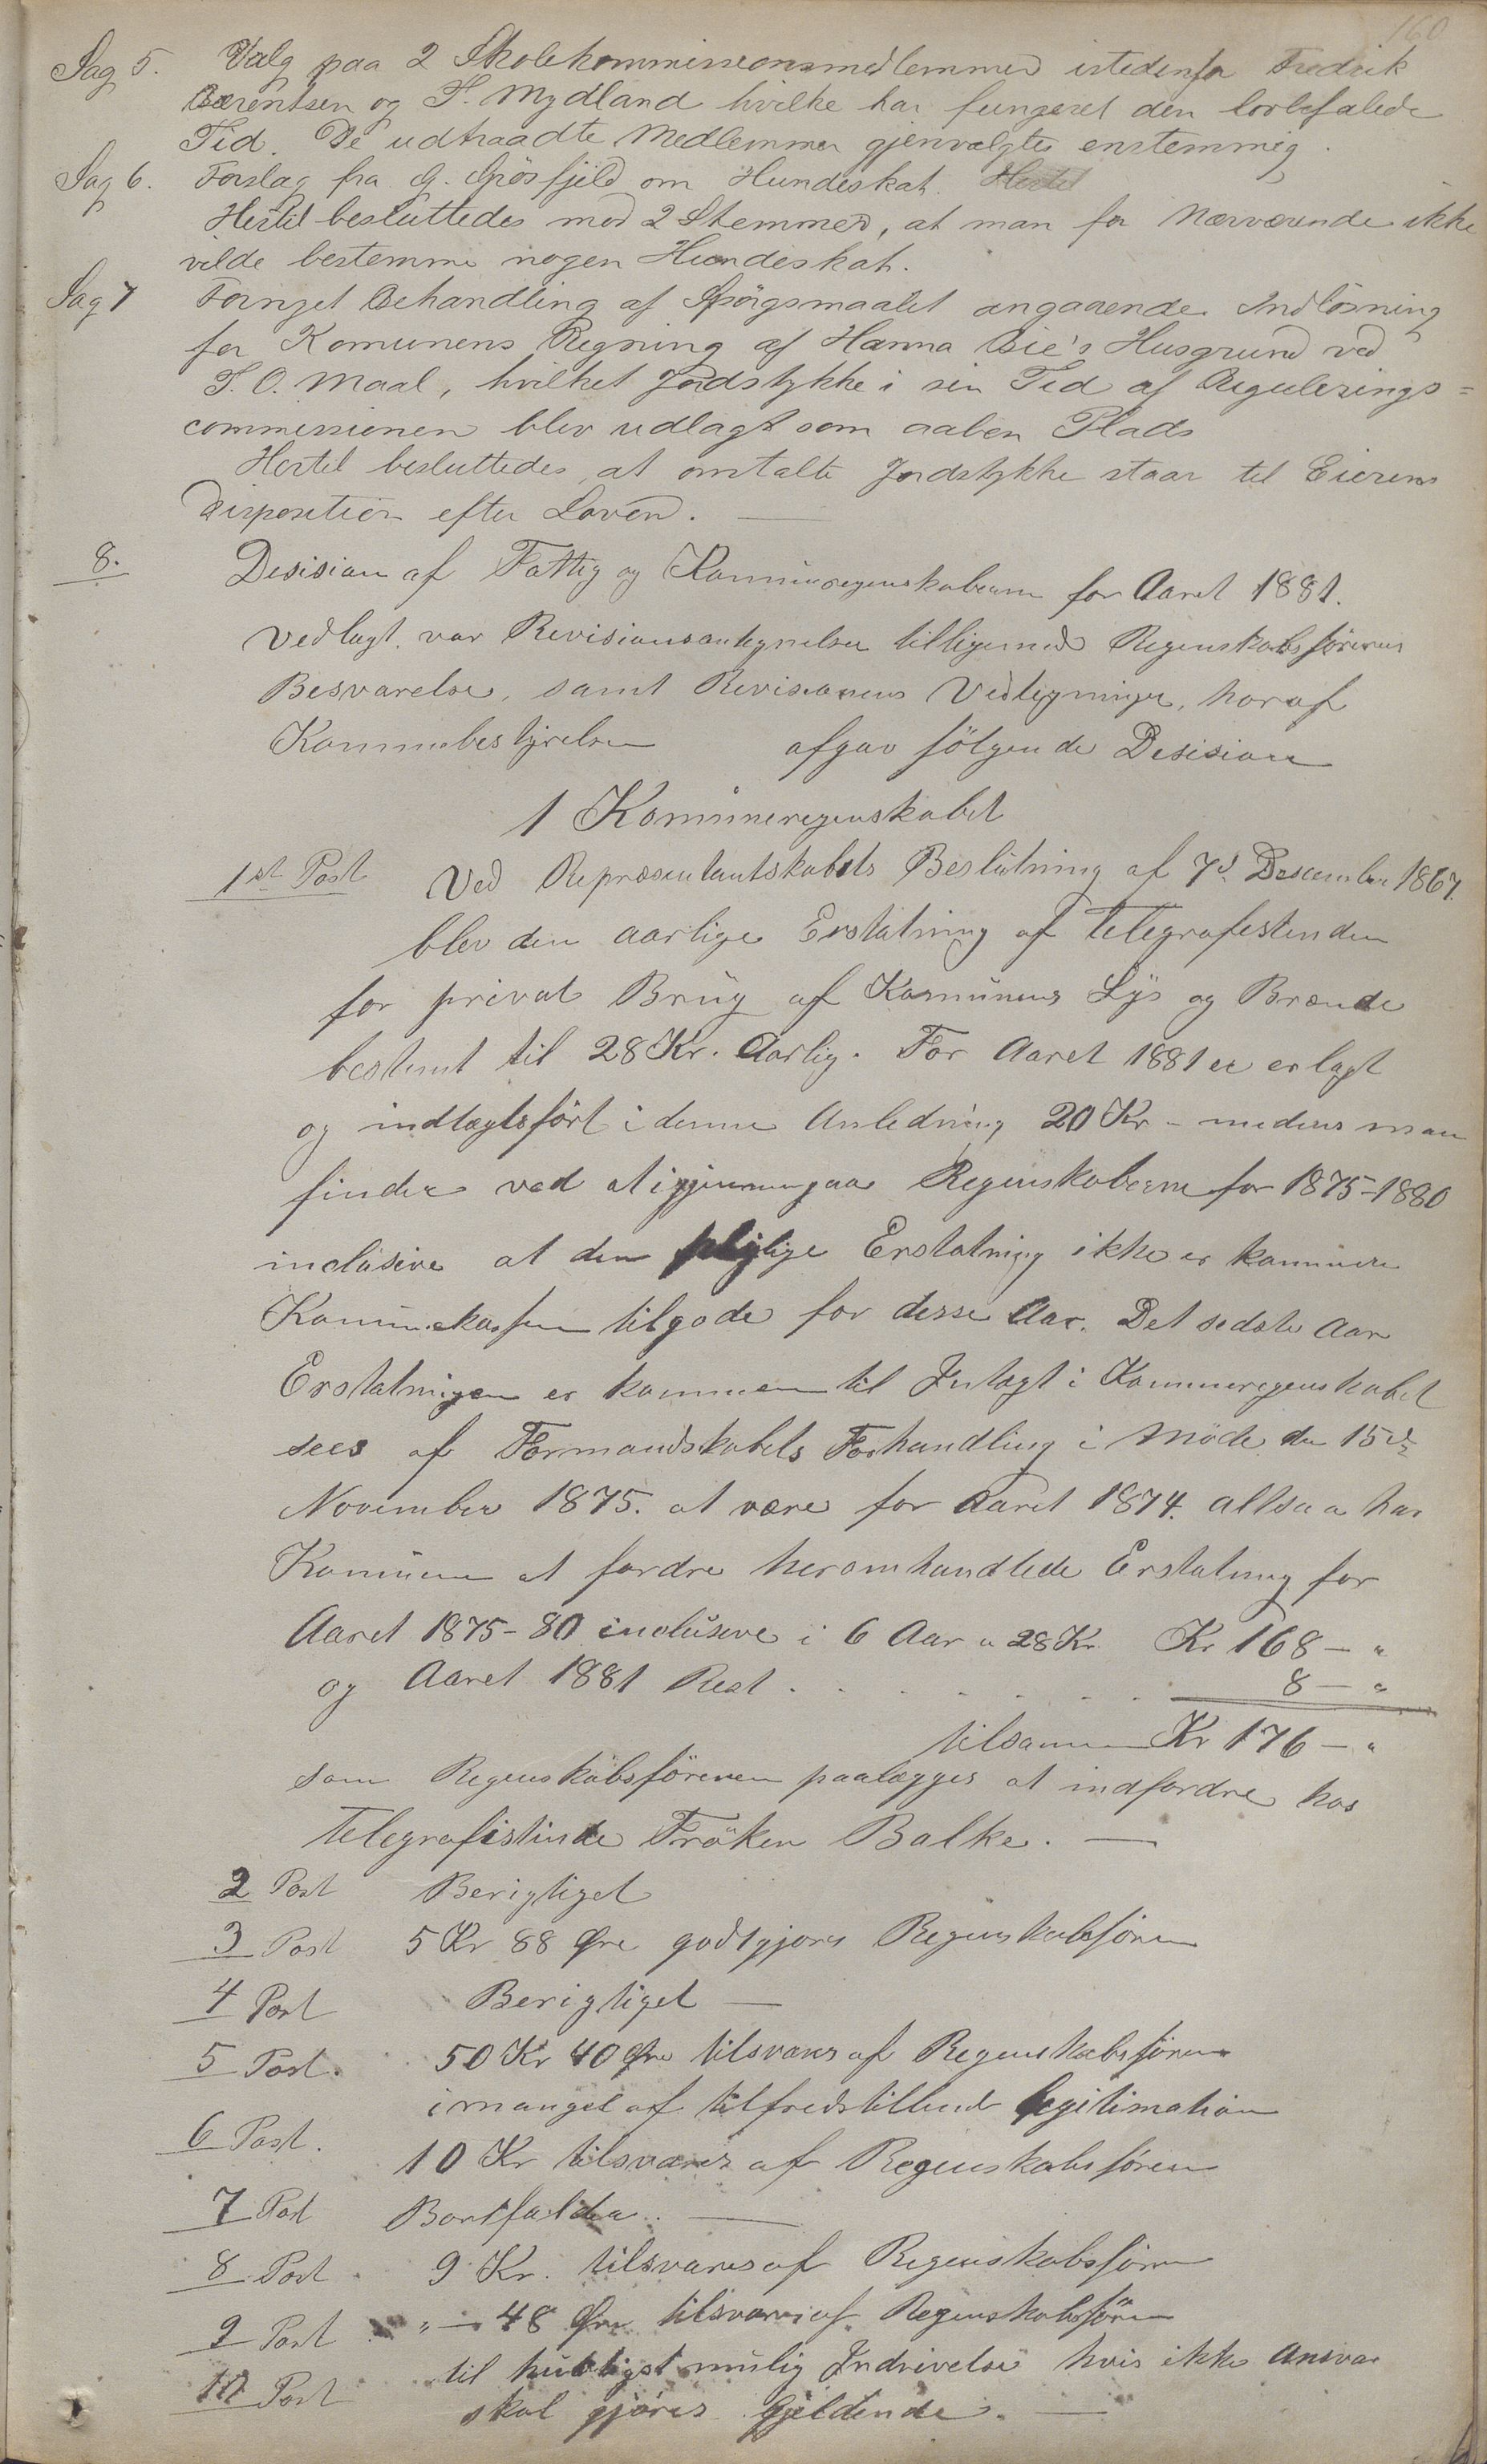 160
Sag 5. Valg paa 2 Skolekommissionsmedlemmer istedenfor Fredrik
Bærentsen og T. Mydland hvilke har fungeret den lovbefalede
Tid. De udtraadte Medlemmer gjenvalgtes enstemmig.
Sag 6. Forslag fra G. Spösfjeld om Hundeskat. Hertil
Hertil besluttedes mod 2 Stemmer, at man for Nærværende ikke
vilde bestemme nogen Hundeskat.
Sag 7 Fornyet Behandling af Spörgsmaalet angaaende Indlösning
for Komunens Regning af Hanna Bie's Husgrund ved
T. O. Maal, hvilket Jordstykke i sin Tid af Regulerings=
commissionen blev udlagt som aaben Plads
Hertil besluttedes, at omtalte Jordstykke staar til Eierens
Disposition efter Loven.
8. Desision af Fattig og Komuneregnskaberne for Aaret 1881.
Vedlagt var Revisionsantegnelser tilligemed Regnskabsförerens
Besvarelse, samt Revisionens Vedtegninger, horaf
Kommubestyrelsen afgav fölgende Desision
1 Komuneregnskabet
1st Post Ved Repræsentantskabets Beslutning af 7d Descember 1867.
blev den aarlige Erstatning af Telegrafestinden
for privat Brug af Komunens Lys og Brænde
bestemt til 28 Kr. Aarlig. For Aaret 1881 er erlagt
og indtægtsfört i denne Anledning 20 Kr - medens man
finder ved at igjennemgaa Regnskaberne for 1875-1880
inclusive at den pligtige Erstatning ikke er kommen
Komunekassen tilgode for disse Aar. Det sidste Aar
Erstatningen er kommen til Intægt i Kommuneregnskabet
sees af Formandskabets Forhandling i Möde den 15de
November 1875. at være for Aaret 1874. altsaa har
Komunen at fordre heromhandlede Erstatning for
Aaret 1875-80 inclusive i 6 Aar a 28 Kr. Kr 168 - "
og Aaret 1881 Rest . . . . . . . 8 - "
tilsamen Kr 176 - "
som Regnskabsföreren paalægges at indfordre hos
Telegrafistinde Fröken Balke.
2 Post Berigtiget
3 Post 5 Kr 88 Øre godtgjöres Regnskabsfören
4 Post Berigtiget
5 Post. 50 Kr 40 Øre tilsvares af Regnskabsfören
i mangel af tilfredstillende legitimation
6 Post. 10 Kr tilsvares af Regnskabsfören
7 Post Bortfalder.
8 Post 9 Kr. tilsvares af Regnskabsfören
9 Post " - 48 Øre tilsvares af Regnskabsfören
10 Post til hurtigst mulig Indrivelse hvis ikke Ansvar
skal gjöres Gjeldende.